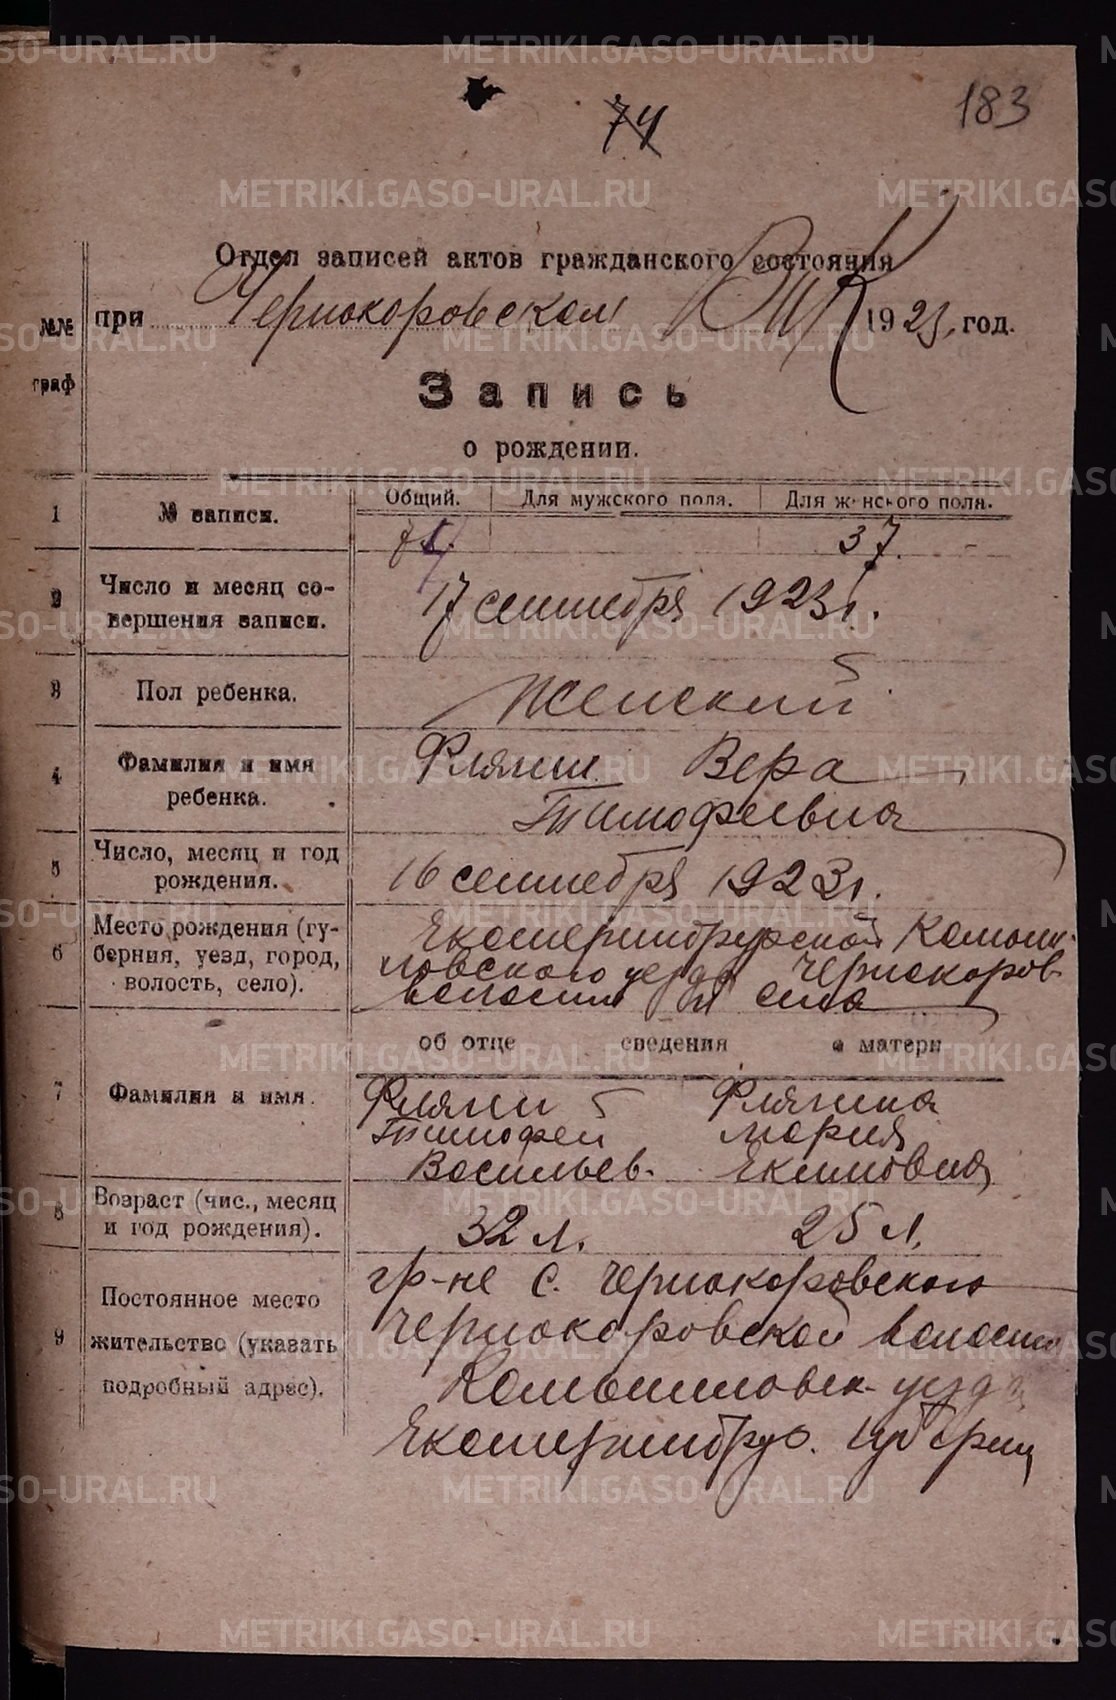 183
74
Отдел записей актов гражданского состояния
при Чернокоровском ВИК 1923 год.
№№ граф
Запись
о рождении.
Общий. Для мужского пола. Для женского пола.
1 № записи. 37.
2 Число и месяц со-
вершения записи. 17 сентября 1923 г.
3 Пол ребенка. Женский
4 Фамилия и имя
ребенка. Флягин Вера
Тимофеевна
5 Число, месяц и год
рождения. 16 сентября 1923 г.
6 Место рождения (гу-
берния, уезд, город,
волость, село).
Екатеринбургской Камыш-
ловского уезда Чернокоров.
волости села
об отце сведения о матери
7 Фамилия и имя.
Флягин Флягина
Тимофей Мария
Васильев. Екимовна
8 Возраст (чис., месяц
и год рождения). 32 л. 25 л.
9 Постоянное место
жительство (указать
подробный адрес).
гр-не с. Чернокоровского
Чернокоровской волости
Камышловск. уезда
Екатеринбург. губернии
METRIKI.GASO-URAL.RU